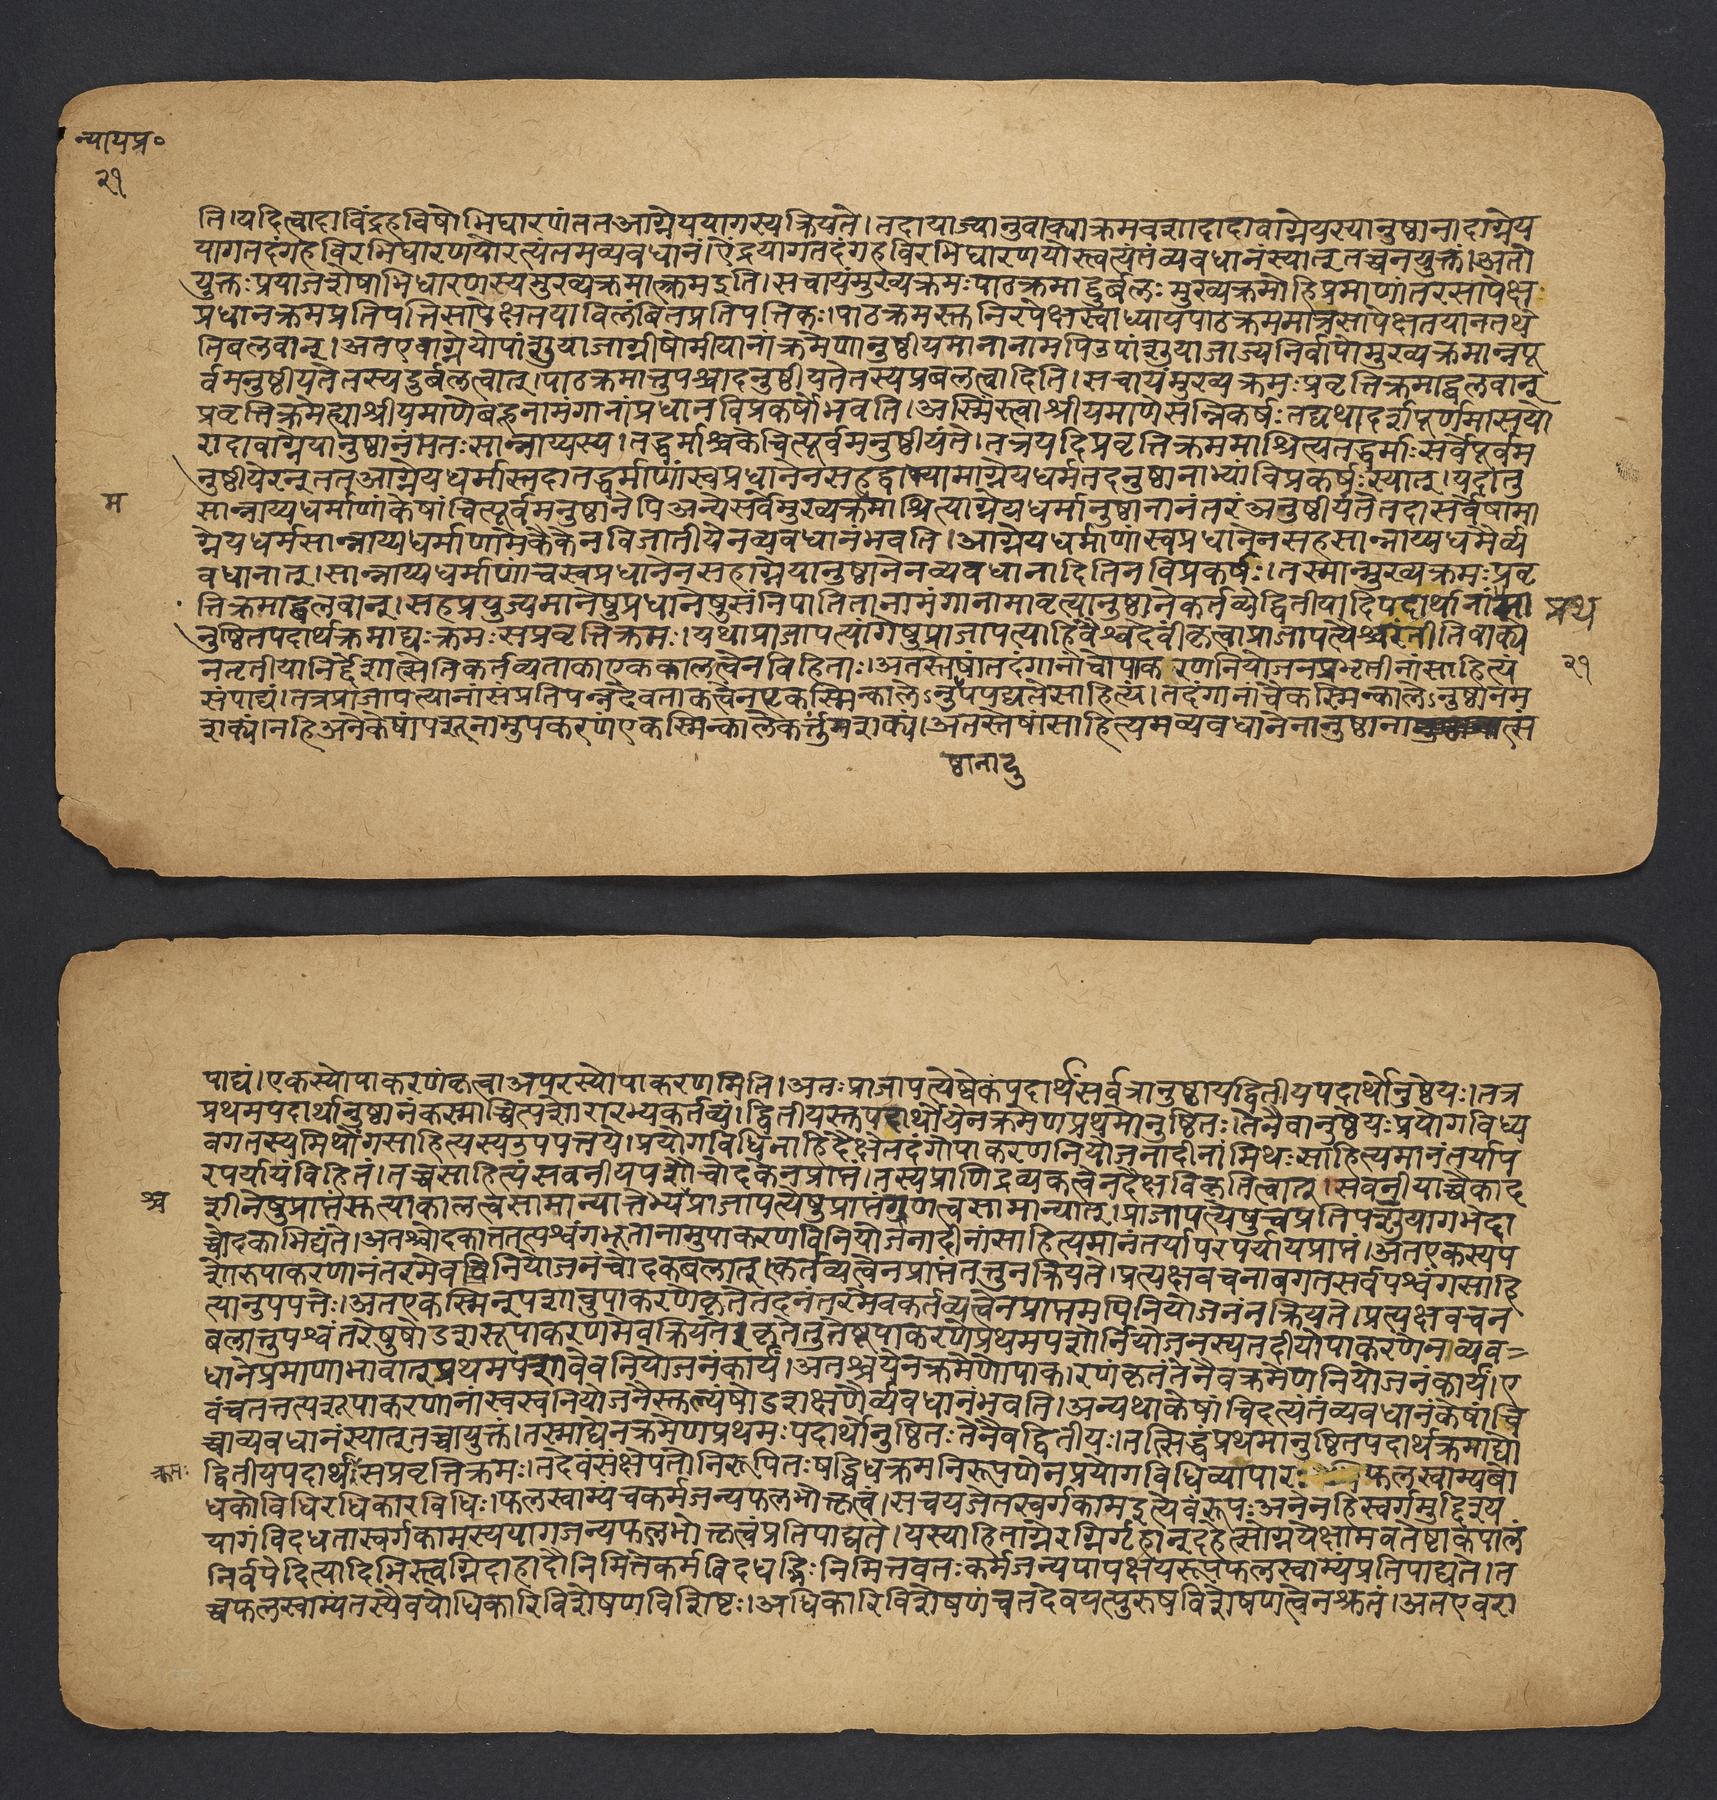 न्यायप्र॰
२१
ति।यदित्वादाविंद्रहविषोभिघारणंततआग्नेययागस्यक्रियते।तदायाज्यानुवाक्याक्रमवशादादावाग्नेयस्यानुष्ठानादाग्नेय
यागतदंगहविरभिघारणयोरत्यंतमव्यवधानं।ऐंद्रयागतदंगहविरभिघारणयोस्त्वत्यंतंव्यवधानंस्यात्तच्चनयुक्तं।अतो
युक्तःप्रयाजशेषाभिधारणस्यमुख्यक्रमात्क्रमइति।सचायंमुख्यक्रमःपाठक्रमाद्दुर्बलःमुख्यक्रमोहिप्रमाणांतरसापेक्ष
प्रधानक्रमप्रतिपत्तिसापेक्षतयाविलंबितप्रतिपत्तिकः।पाठक्रमस्तुनिरपेक्षस्वाध्यायपाठक्रममात्रसापेक्षतयानतथे
तिबलवान्।अतएवाग्नेयोपांशुयाजाग्नीषोमीयानांक्रमेणानुष्ठीयमानानामपिउपांशुयाजाज्यनिर्वापोमुख्यक्रमान्नपू
र्वमनुष्ठीयतेतस्यदुर्बलत्वात्।पाठक्रमात्तुपश्चादनुष्ठीयतेतस्यप्रबलत्वादिति।सचायंमुख्यक्रमःप्रवृत्तिक्रमाद्बलवान्
प्रवृत्तिक्रमेह्याश्रीयमाणेबहूनामंगानांप्रधानविप्रकर्षोभवति।अस्मिंस्त्वाश्रीयमाणेसन्निकर्षःतद्यथादर्शपूर्णमासयो
रादावाग्नेयानुष्ठानंततःसान्नाय्यस्य।तद्धर्माश्चकेचित्पूर्वमनुष्ठीयंते।तत्रयदिप्रवृत्तिक्रममाश्रित्यतद्धर्माःसर्वेपूर्वम
नुष्ठीयेरन्ततआग्नेयधर्मास्तदातद्धर्माणांस्वप्रधानेनसहद्वाभ्यामाग्नेयधर्मतदनुष्ठानाभ्यांविप्रकर्षःस्यात्।यदातु
म
सान्नाय्यधर्माणांकेषांचित्पूर्वमनुष्ठानेपिअन्येसर्वेमुख्यक्रमाश्रित्याग्नेयधर्मानुष्ठानानंतरंअनुष्ठीयंतेतदासर्वेषामा
ग्नेयधर्मसान्नाय्यधर्माणामेकैकेनविजातीयेनव्यवधानंभवति।आग्नेयधर्माणांस्वप्रधानेनसहसान्नाय्यधर्मैर्व्य
वधानात्।सान्नाय्यधर्माणांचस्वप्रधानेनसहाग्नेयानुष्ठानेनव्यवधानादितिनविप्रकर्षः।तस्मान्मुख्यक्रमःप्रवृ
त्तिक्रमाद्बलवान्।सहप्रयुज्यमानेषुप्रधानेषुसंनिपातितानामंगानामावृत्यानुष्ठानेकर्तव्येद्वितीयादिपदार्थानां
नुष्ठितपदार्थक्रमाद्यःक्रमःसप्रवृत्तिक्रमः।यथाप्राजापत्यांगेषुप्राजापत्याहिवैश्वदेवींकृत्वाप्राजापत्यैश्चरंतीतिवाक्ये
प्रथ
नतृतीयानिर्द्देशात्सेतिकर्तव्यताकाएककालत्वेनविहिताः।अतस्तेषांतदंगानांचोपाकरणनियोजनप्रभृतीनांसाहित्यं
२१
संपाद्यं।तत्रप्राजापत्यानांसंप्रतिपन्नदेवताकत्वेनएकस्मिन्कालेऽनुपपद्यतेसाहित्यं।तदंगानांचैकस्मिन्कालेऽनुष्ठानम
शक्यं।नहिअनेकेषांपशूनामुपकरणंएकस्मिन्कालेकर्त्तुमशक्यं।अतस्तेषांसाहित्यमव्यवधानेनानुष्ठानात्सं
ष्ठानादु
पाद्यं।एकस्योपाकरणंकृत्वाअपरस्योपाकरणमिति।अतःप्राजापत्येष्वेकंपदार्थंसर्वत्रानुष्ठायद्वितीयपदार्थोनुष्ठेयः।तत्र
प्रथमपदार्थानुष्ठानंकस्माच्चित्पशोरारभ्यकर्तव्यं।द्वितीयस्तुपदार्थोयेनक्रमेणप्रथमोनुष्ठितःतेनैवानुष्ठेयःप्रयोगविध्य
वगतस्यमिथोंगसाहित्यस्यउपपत्तये।प्रयोगविधिनाहिदैक्षेतदंगोपाकरणनियोजनादीनांमिथःसाहित्यमानंतर्याप
रपर्यायंविहितं।तच्चसाहित्यंसवनीयपशौचोदकेनप्राप्तं।तस्यप्राणिद्रव्यकत्वेनदैक्षविकृतित्वात्।सवनीयाच्चैकाद
अ
शिनेषुप्राप्तंसुत्याकालत्वसामान्यात्तेभ्यःप्राजापत्येषुप्राप्तंगुणत्वसामान्यात्।प्राजापत्येषुचप्रतिपशुयागभेदा
च्चोदकाभिद्यंते।अतश्चोदकात्ततत्पश्वंगभूतानामुपाकरणविनियोजनादीनांसाहित्यमानंतर्यापरपर्यायप्राप्तं।अतएकस्यप
शोरुपाकरणानंतरमेवविनियोजनंचोदकबलात्कर्तव्यत्वेनप्राप्तंतत्तुनक्रियते।प्रत्यक्षवचनावगतसर्वपश्वंगसाहि
त्यानुपपत्तेः।अतएकस्मिन्पशावुपाकरणेकृतेतदनंतरमेवकर्तव्यत्वेनप्राप्तमपिनियोजनंनक्रियते।प्रत्यक्षवचन
बलात्तुपश्वंतरेषुषोडशसूपाकरणमेवक्रियते।कृतेतुतेषूपाकरणेप्रथमपशोर्नियोजनस्यतदीयोपाकरणेनव्यव=
धानेप्रमाणाभावात्प्रथमपशावेवनियोजनंकार्यं।अतश्चयेनक्रमेणोपाकरणंकृतंतेनैवक्रमेणनियोजनंकार्यं।ए
वंचतत्तत्पशूपाकरणानांस्वस्वनियोजनैस्तुल्यंषोडशक्षणैर्व्यवधानंभवति।अन्यथाकेषांचिदत्यंतंव्यवधानंकेषांचि
च्चाव्यवधानंस्यात्तच्चायुक्तं।तस्माद्येनक्रमेणप्रथमःपदार्थोनुष्ठितःतेनैवद्वितीयः।तत्सिद्धंप्रथमानुष्ठितपदार्थक्रमाद्यो
क्रमः
द्वितीयपदार्थःसप्रवृत्तिक्रमः।तदेवंसंक्षेपतोनिरूपितःषड्विधक्रमनिरूपणेनप्रयोगविधिव्यापारःफलस्वाम्यबो
धकोविधिरधिकारविधिः।फलस्वाम्यंचकर्मजन्यफलभोक्तृत्वं।सचयजेतस्वर्गकामइत्येवंरूपःअनेनहिस्वर्गमुद्दिश्य
यागंविदधतास्वर्गकामस्ययागजन्यफलभोक्तृत्वंप्रतिपाद्यते।यस्याहिताग्नेरग्निर्गृहान्दहेत्सोग्नयेक्षामवतेष्टाकपालं
निर्वपेदित्यादिभिस्त्वग्निदाहादौनिमित्तेकर्मविदधद्भिःनिमित्तवतःकर्मजन्यपापक्षयरूपंफलस्वाम्यंप्रतिपाद्यते।त
च्चफलस्वाम्यंतस्यैवयोधिकारिविशेषणविशिष्टः।अधिकारिविशेषणंचतदेवयत्पुरुषविशेषणत्वेनश्रुतं।अतएवरा